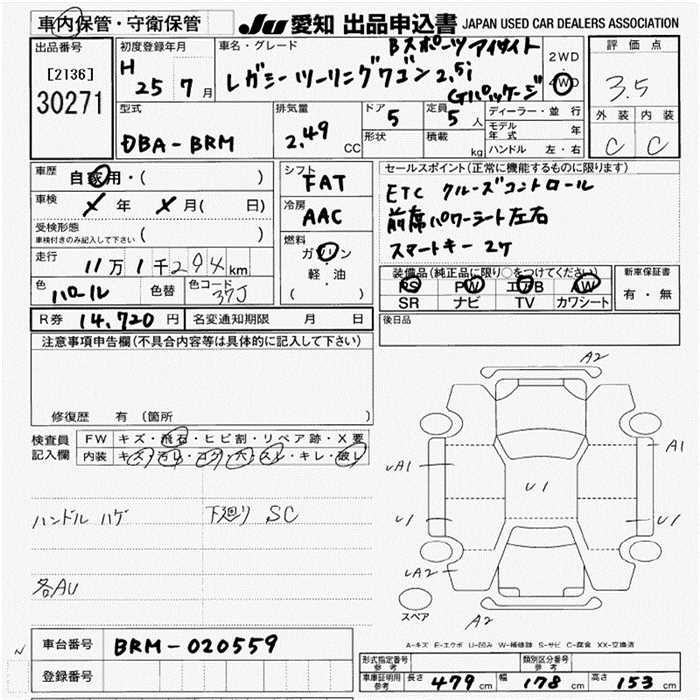 車内保管・守衛保管
JU 愛知 出品申込書 JAPAN USED CAR DEALERS ASSOCIATION
出品番号
[2136]
30271
初度登録年月
H 25 7月
車名・グレード
Bスポーツアイサイト
レガシーツーリングワゴン 2.5i
Gパッケージ
2WD
4WD
評価点
3.5
外装 内装
C C
型式
DBA-BRM
排気量
2.49 CC
ドア 5
形状
定員 5 人
積載 kg
ディーラー・並行
モデル年式 年
ハンドル 左・右
車歴 自家用・( )
車検 年 月( 日)
受検形態
車検付きのみ記入して下さい ( )
走行 11万1千294km
色 パール 色替 色コード 37J
R券 14,720円 名変通知期限 月 日
シフト
FAT
冷房
AAC
燃料
ガソリン
軽油
( )
セールスポイント(正常に機能するものに限ります)
ETC クルーズコントロール
前席パワーシート左右
スマートキー 2ケ
装備品(純正品に限り○をつけてください)
PS PW エアB AW
SR ナビ TV カワシート
新車保証書
有・無
後日品
注意事項申告欄(不具合内容等は具体的に記入して下さい)
修復歴 有(箇所 )
検査員記入欄
FW キズ・飛石・ヒビ割・リペア跡・X要
内装 キズ・汚レ・コゲ・穴・スレ・キレ・破レ
ハンドル ハゲ 下廻り SC
各AU
A2
A1
UA1
U1
U1
U1
UA2
A2
スペア
A-キズ E-エクボ U-凹み W-補修跡 S-サビ C-腐食 XX-交換済
車台番号 BRM-020559
登録番号
N
形式指定番号 参考
類別区分番号 参考
車庫証明用 参考 長さ 479 cm 幅 178 cm 高さ 153 cm